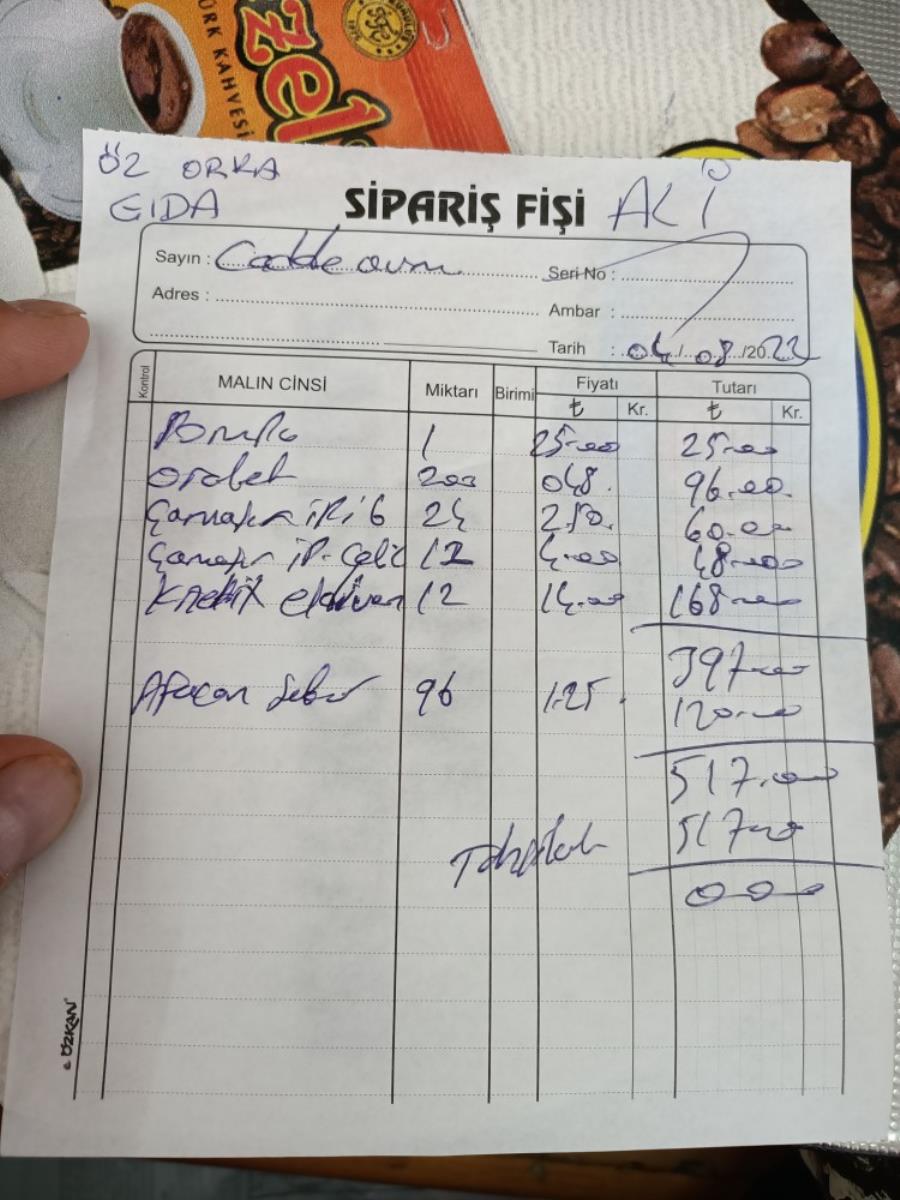 TÜRK KAHVESİ
zel
ÖZ ORKA
GIDA
SİPARİŞ FİŞİ ALİ
Sayın : Cadde avm Seri No :
Adres : Ambar :
Tarih : 04/08/2022
Kontrol MALIN CİNSİ Miktarı Birimi Fiyatı Tutarı
₺ Kr. ₺ Kr.
1 25.00 25.00
oralet 200 048. 96.00
Çamaşır İPİ 6 24 250. 60.00
Çamaşır İP. Çelik 12 4.00 48.00
eldiven 12 14.00 168.00
397.00
Afacan 96 1.25 120.00
517.00
Tahsilat 517.00
000
ÖZKAN